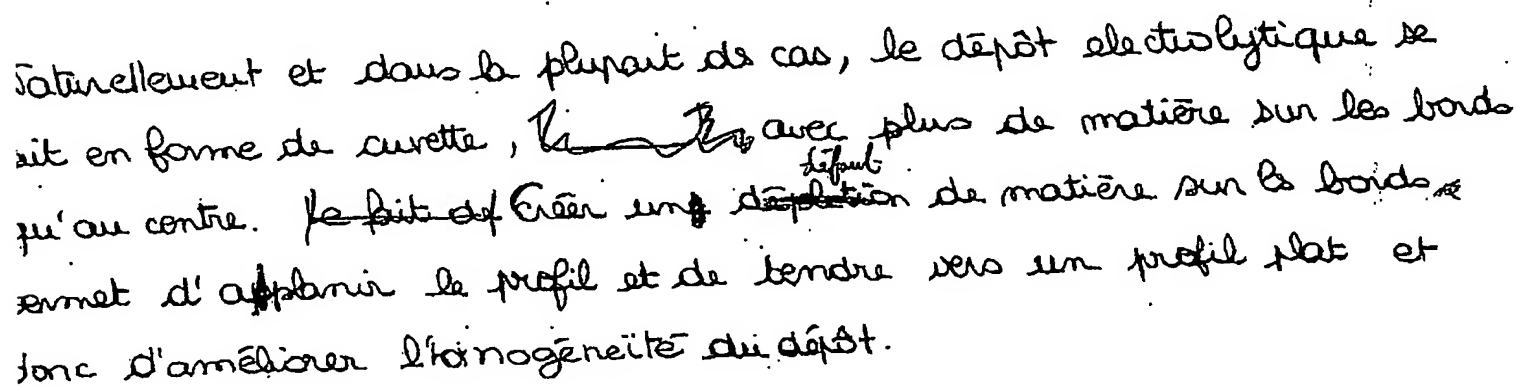 Naturellement et dans la plupart des cas, le dépôt electrolytique se
fait en forme de cuvette, avec plus de matière sur les bords
qu'au centre. Le fait de Créer un défaut de matière sur les bords
permet d'applanir le profil et de tendre vers un profil plat et
donc d'améliorer l'homogénéité du dépôt.